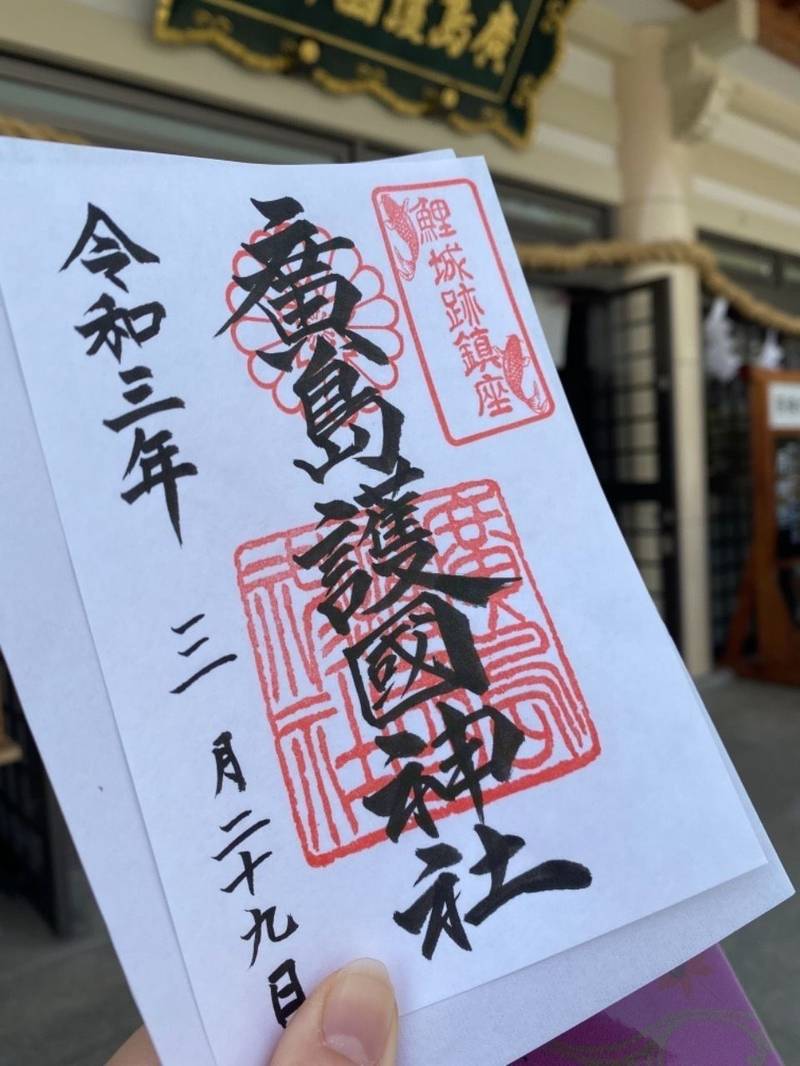 廣島護國
鯉城跡鎮座
廣島護國神社
令和三年
三月二十九日